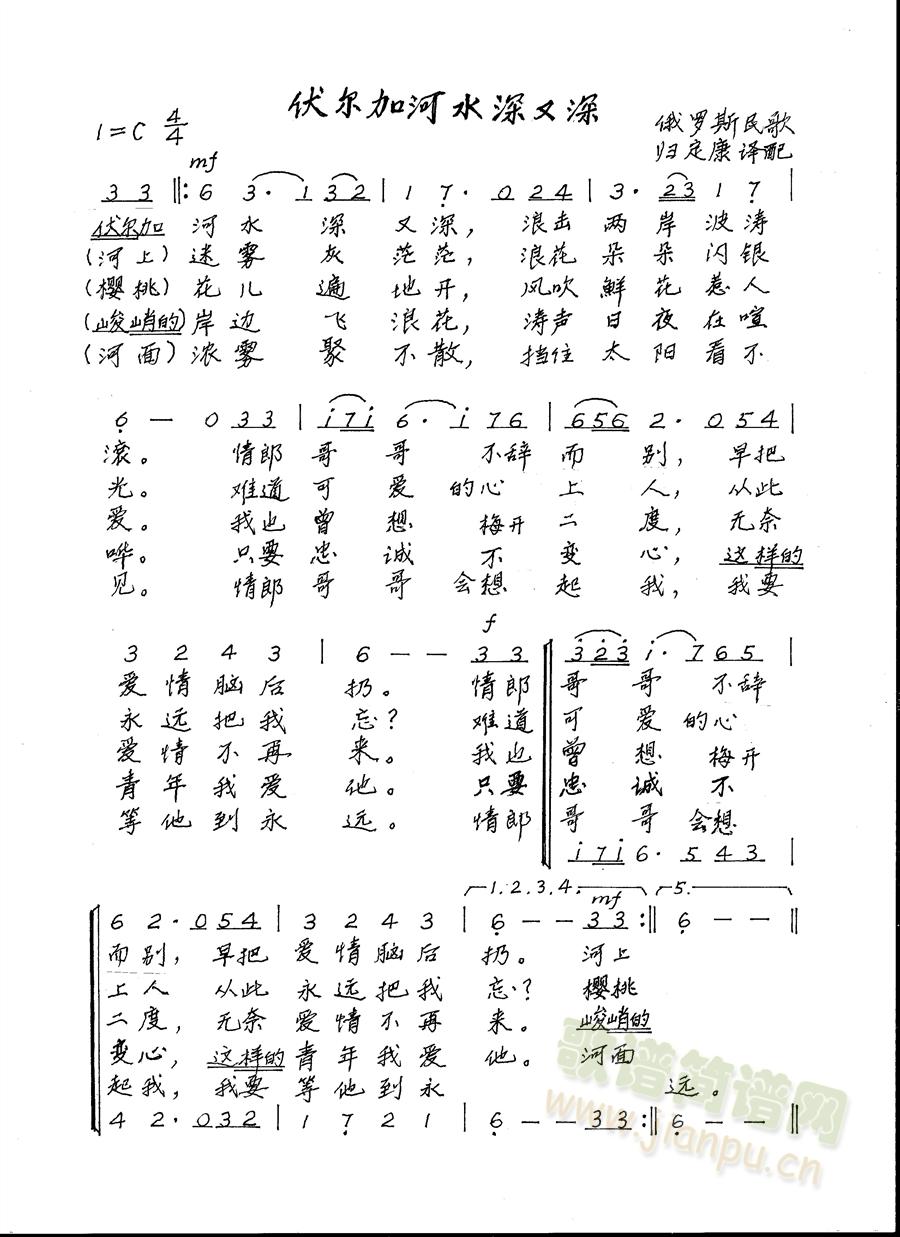 伏尔加河水深又深
1=C 4/4
俄罗斯民歌
归定康译配
mf
3 3 ‖: 6 3· 1 3 2 | 1 7· 0 2 4 | 3· 2 3 1 7 |
伏尔加 河 水 深 又 深, 浪击 两 岸 波 涛
(河上) 迷 雾 灰 茫 茫, 浪花 朵 朵 闪 银
(樱桃) 花 儿 遍 地 开, 风吹 鲜 花 惹 人
(峻峭的) 岸 边 飞 浪 花, 涛声 日 夜 在 喧
(河面) 浓 雾 聚 不 散, 挡住 太 阳 看 不
6 — 0 3 3 | i 7 i 6· i 7 6 | 6 5 6 2· 0 5 4 |
滚。 情郎 哥 哥 不辞 而 别, 早把
光。 难道 可 爱 的心 上 人, 从此
爱。 我也 曾 想 梅开 二 度, 无奈
哗。 只要 忠 诚 不 变 心, 这样的
见。 情郎 哥 哥 会想 起 我, 我要
f
3 2 4 3 | 6 — — 3 3 ‖ 3 2 3 i· 7 6 5 |
爱 情 脑 后 扔。 情郎 哥 哥 不辞
永 远 把 我 忘? 难道 可 爱 的心
爱 情 不 再 来。 我也 曾 想 梅开
青 年 我 爱 他。 只要 忠 诚 不
等 他 到 永 远。 情郎 哥 哥 会想
i 7 i 6· 5 4 3 |
1.2.3.4. mf 5.
6 2· 0 5 4 | 3 2 4 3 | 6 — — 3 3 :‖ 6 — — ‖
而 别, 早把 爱 情 脑 后 扔。 河上
上 人 从此 永 远 把 我 忘? 樱桃
二 度, 无奈 爱 情 不 再 来。 峻峭的
变 心, 这样的 青 年 我 爱 他。 河面
起 我, 我要 等 他 到 永 远。
4 2· 0 3 2 | 1 7 2 1 | 6 — — 3 3 :‖ 6 — — ‖
歌谱简谱网
www.jianpu.cn